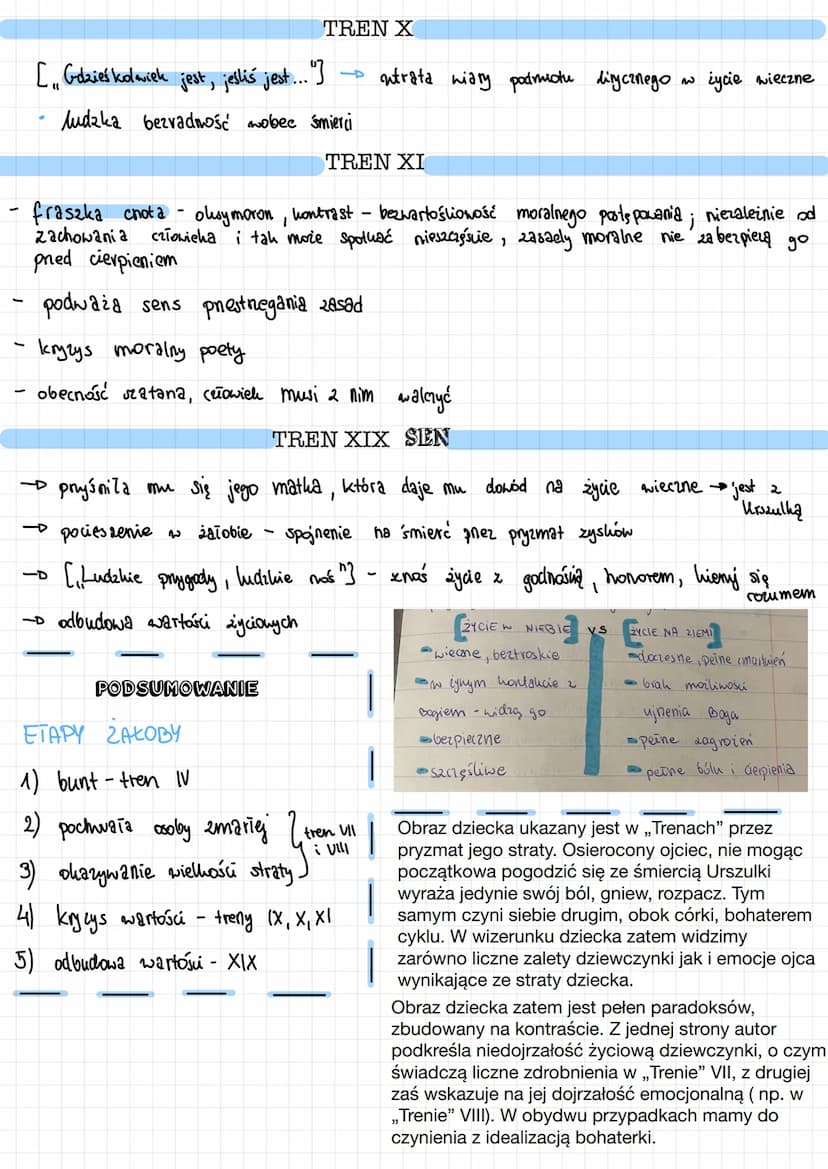 TREN X
[„Gdzieśkolwiek jest, jeśliś jest..."] → utrata wiary podmiotu lirycznego w życie wieczne
• ludzka bezradność wobec śmierci
TREN XI
- fraszka cnota - oksymoron, kontrast - bezwartościowość moralnego postępowania; niezależnie od
zachowania człowieka i tak może spotkać nieszczęście, zasady moralne nie zabezpieczą go
przed cierpieniem
- podważa sens przestrzegania zasad
- kryzys moralny poety
- obecność szatana, człowiek musi z nim walczyć
TREN XIX SEN
→ przyśniła mu się jego matka, która daje mu dowód na życie wieczne → jest z
Urszulką
→ pocieszenie w żałobie - spojrzenie na śmierć przez pryzmat zysków
→ [„Ludzkie przygody, ludzkie noś"] - znoś życie z godnością, honorem, kieruj się
rozumem
→ odbudowa wartości życiowych
[ŻYCIE W NIEBIE] vs [ŻYCIE NA ZIEMI]
- wieczne, beztroskie
- w żywym kontakcie z
Bogiem - widzą go
- bezpieczne
- szczęśliwe
- doczesne, pełne zmartwień
- brak możliwości
ujrzenia Boga
- pełne zagrożeń
- pełne bólu i cierpienia
PODSUMOWANIE
ETAPY ŻAŁOBY
1) bunt - tren IV
2) pochwała osoby zmarłej } tren VII
i VIII
3) okazywanie wielkości straty
4) kryzys wartości - treny IX, X, XI
5) odbudowa wartości - XIX
Obraz dziecka ukazany jest w „Trenach” przez
pryzmat jego straty. Osierocony ojciec, nie mogąc
początkowa pogodzić się ze śmiercią Urszulki
wyraża jedynie swój ból, gniew, rozpacz. Tym
samym czyni siebie drugim, obok córki, bohaterem
cyklu. W wizerunku dziecka zatem widzimy
zarówno liczne zalety dziewczynki jak i emocje ojca
wynikające ze straty dziecka.
Obraz dziecka zatem jest pełen paradoksów,
zbudowany na kontraście. Z jednej strony autor
podkreśla niedojrzałość życiową dziewczynki, o czym
świadczą liczne zdrobnienia w „Trenie” VII, z drugiej
zaś wskazuje na jej dojrzałość emocjonalną ( np. w
„Trenie” VIII). W obydwu przypadkach mamy do
czynienia z idealizacją bohaterki.